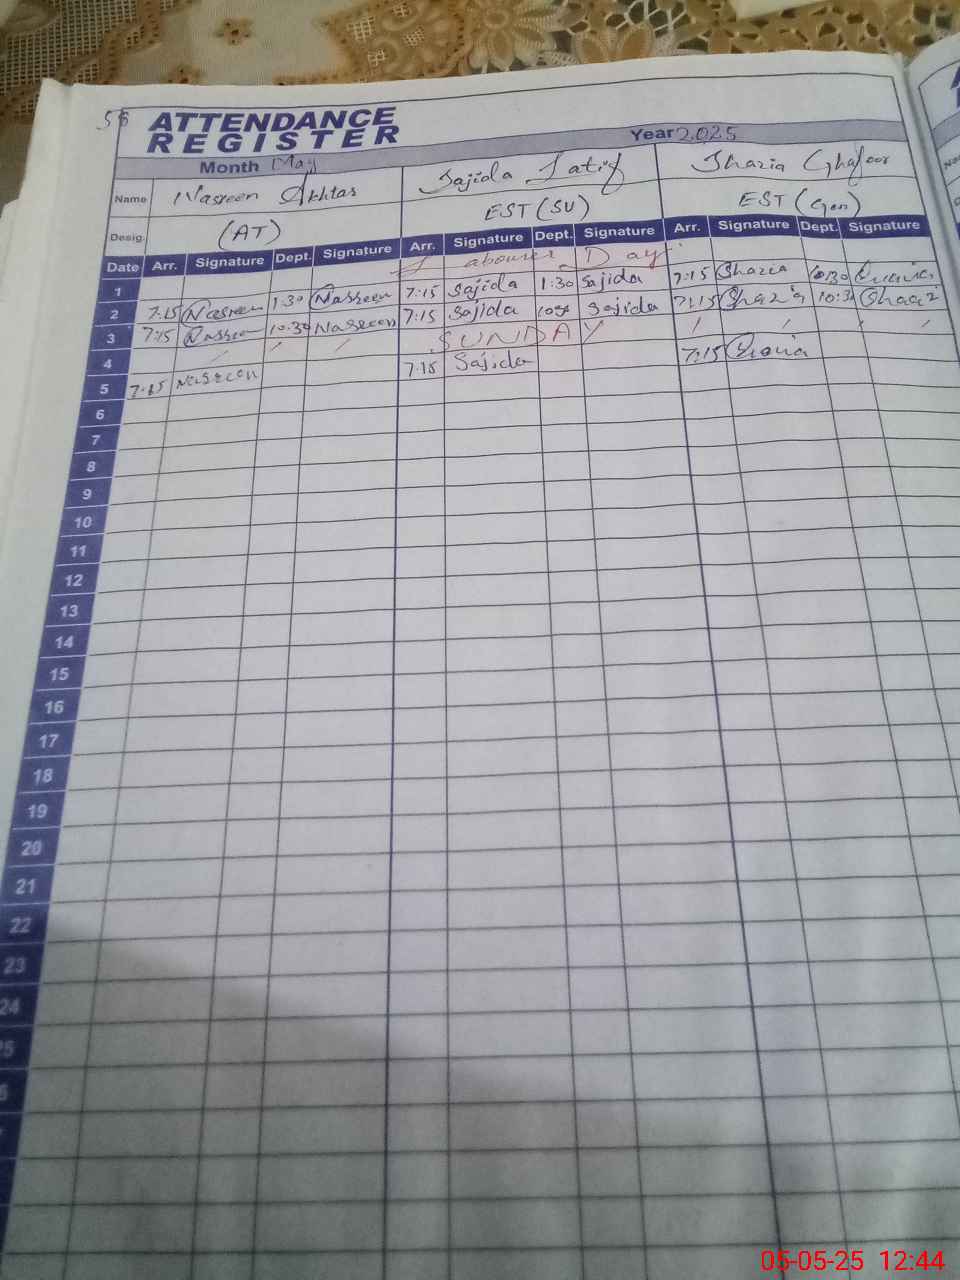 ATTENDANCE
REGISTER
Month May Year 2025
Name Nasreen Akhtar Sajida Latif Shazia Ghafoor
Desig. (AT) EST (SU) EST (Gen)
Date Arr. Signature Dept. Signature Arr. Signature Dept. Signature Arr. Signature Dept. Signature
1 Labourer Day
2 7:15 Nasreen 1:30 Nasreen 7:15 Sajida 1:30 Sajida 7:15 Shazia 10:30
3 7:15 Nasreen 10:30 Nasreen 7:15 Sajida Sajida 7:15 Shazia 10:30 Shazia
4 SUNDAY
5 7:15 Nasreen 7:15 Sajida 7:15 Shazia
6
7
8
9
10
11
12
13
14
15
16
17
18
19
20
21
22
23
24
05-05-25 12:44